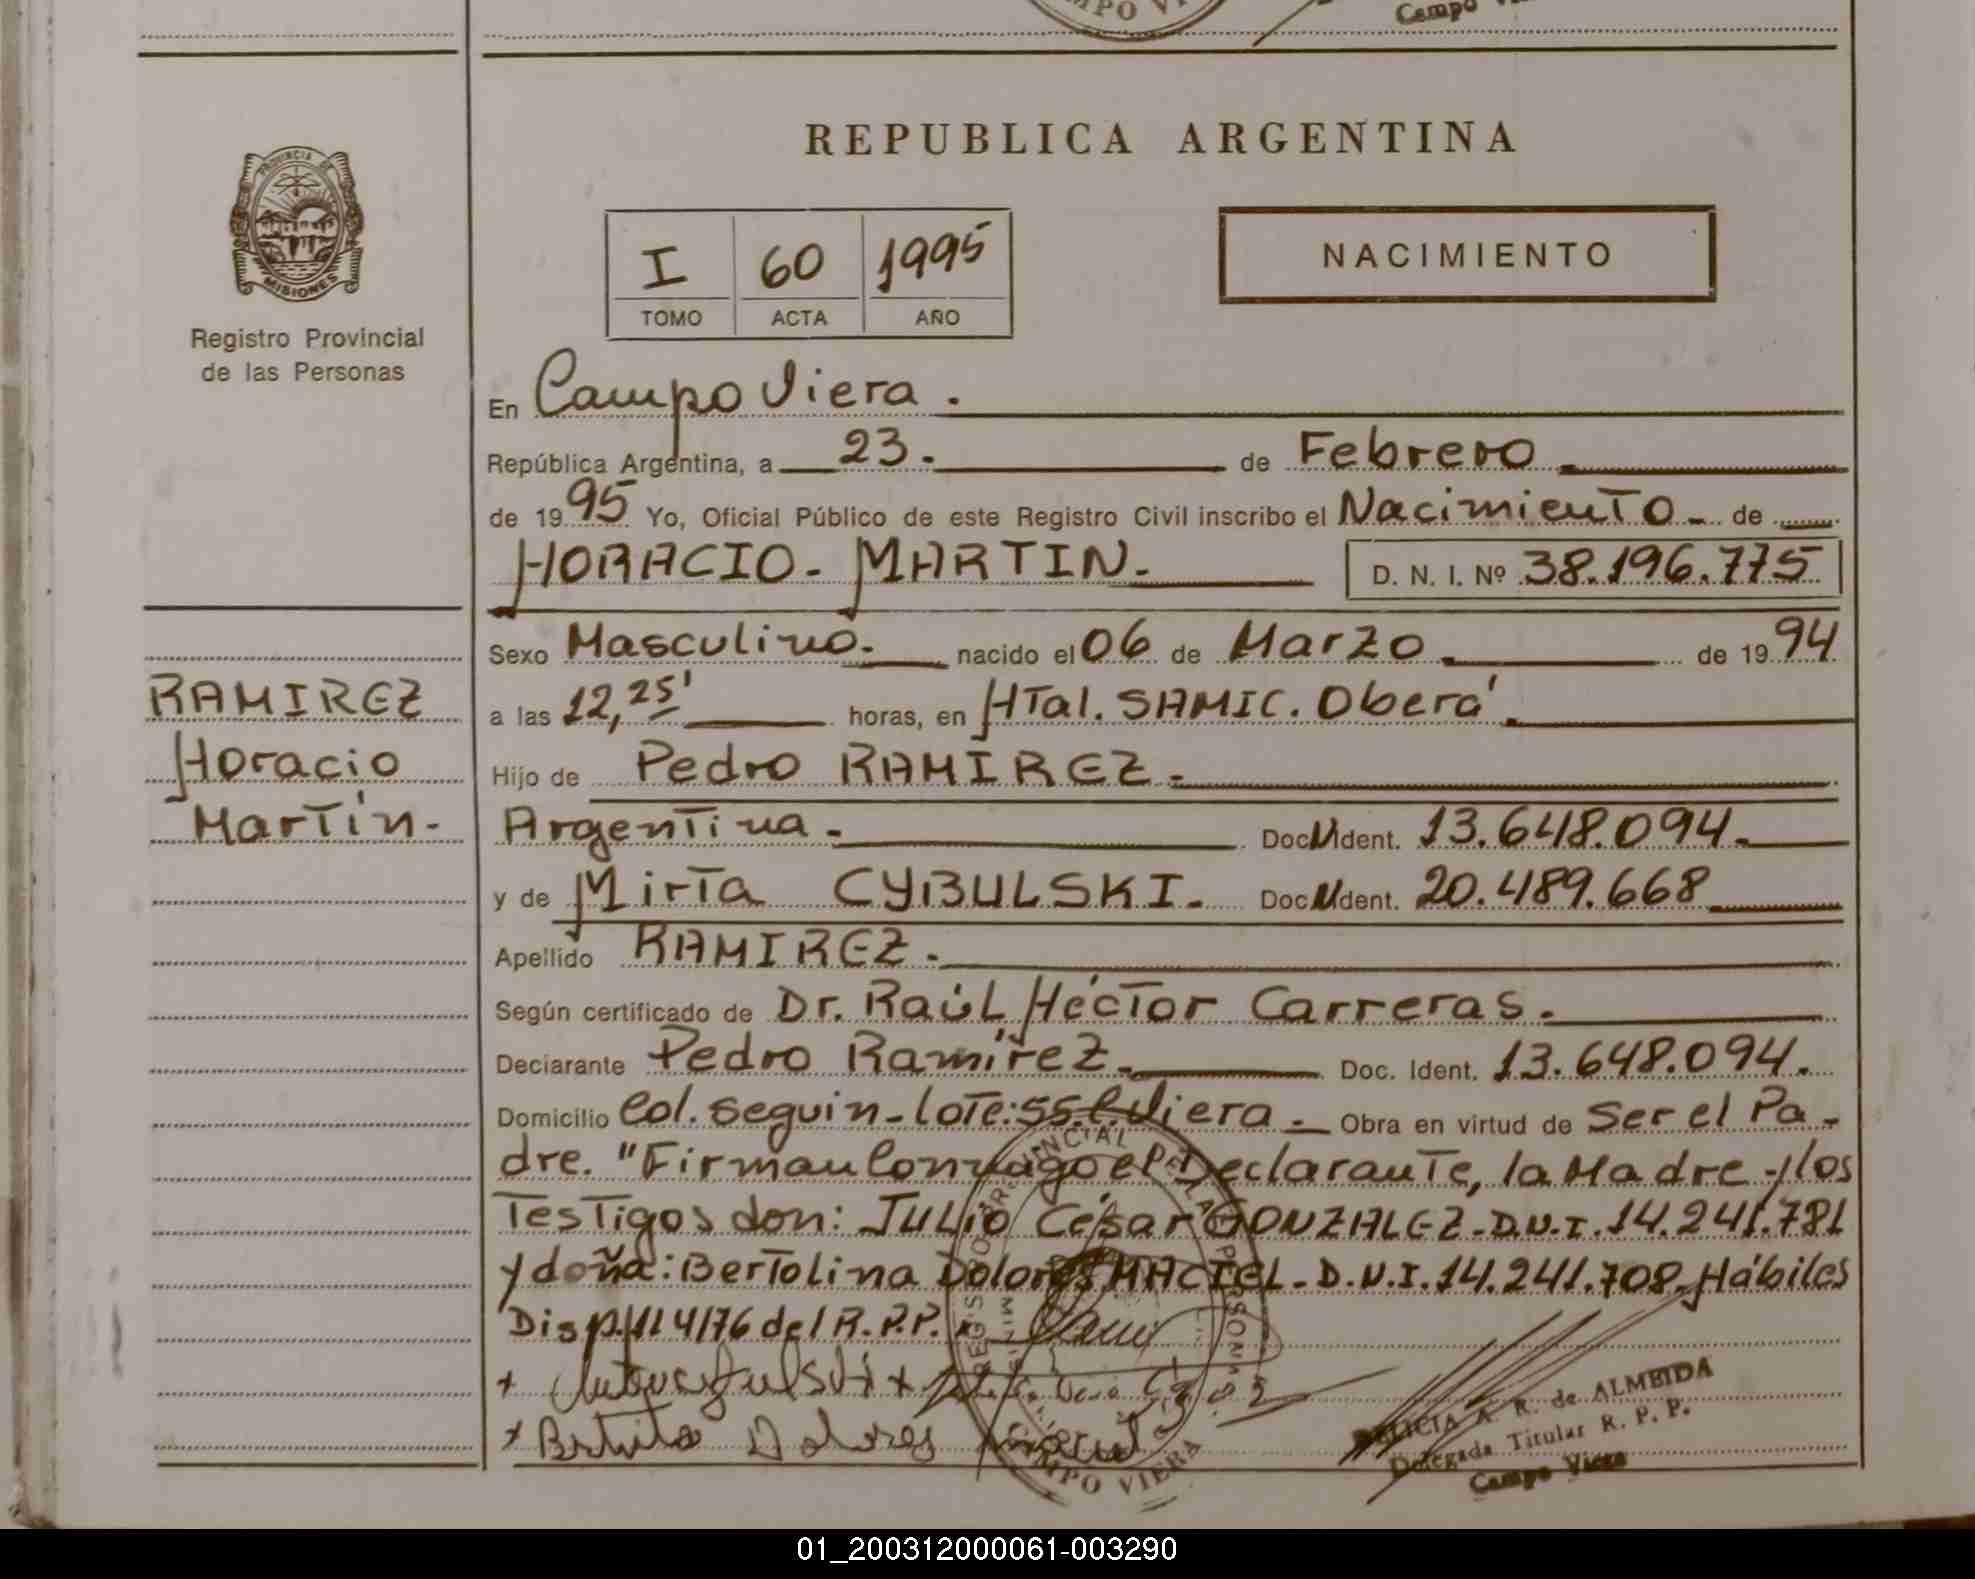 MPO VI
Campo Vi
REPUBLICA ARGENTINA
PROVINCIA DE
MISIONES
I 60 1995
TOMO ACTA AÑO
NACIMIENTO
Registro Provincial
de las Personas
En Campo Viera.
República Argentina, a 23. de Febrero
de 1995 Yo, Oficial Público de este Registro Civil inscribo el Nacimiento de
HORACIO. MARTIN. D. N. I. Nº 38.196.775
Sexo Masculino. nacido el 06 de Marzo de 1994
RAMIREZ
a las 12,25' horas, en HTal. SAMIC. Oberá.
Horacio
Hijo de Pedro RAMIREZ.
Martín.
Argentina. Doc. Ident. 13.648.094.
y de Mirta CYBULSKI. Doc. Ident. 20.489.668
Apellido RAMIREZ.
Según certificado de Dr. Raúl Héctor Carreras.
Declarante Pedro Ramírez. Doc. Ident. 13.648.094.
Domicilio Col. Seguin-Lote:55.C.Viera. Obra en virtud de Ser el Pa-
dre. "Firman Conmigo el Declarante, la Madre y los
Testigos don: JULio César GONZALEZ-D.N.I. 14.241.781
y doña: Bertolina Dolores MACIEL-D.N.I. 14.241.708-Hábiles
Disp. 114/76 del R.P.P.
DELICIA A. R. de ALMEIDA
Bertita Dolores Maciel
Delegada Titular R. P. P.
Campo Viera
CAMPO VIERA
01_200312000061-003290